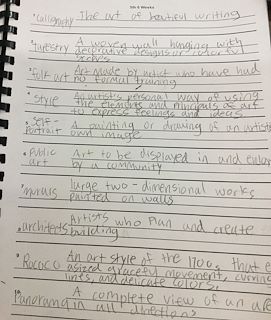 5th 6 Weeks
calligraphy The art of beautiful writing
tapestry A woven wall hanging with
decorative designs or colorful
scenes
folk art Art made by artist who have had
no formal training
style An artist's personal way of using
the elements and principals of art
to express feelings and ideas
self- A painting or drawing of an artists
portrait own image
Public Art to be displayed in and enjoy
art by a community
murals large two-dimensional works
painted on walls
Artists who plan and create
architects building
Rococo An art style of the 1700s that e
asized graceful movement, curving
lines, and delicate colors.
A complete view of an are
Panorama in all directions